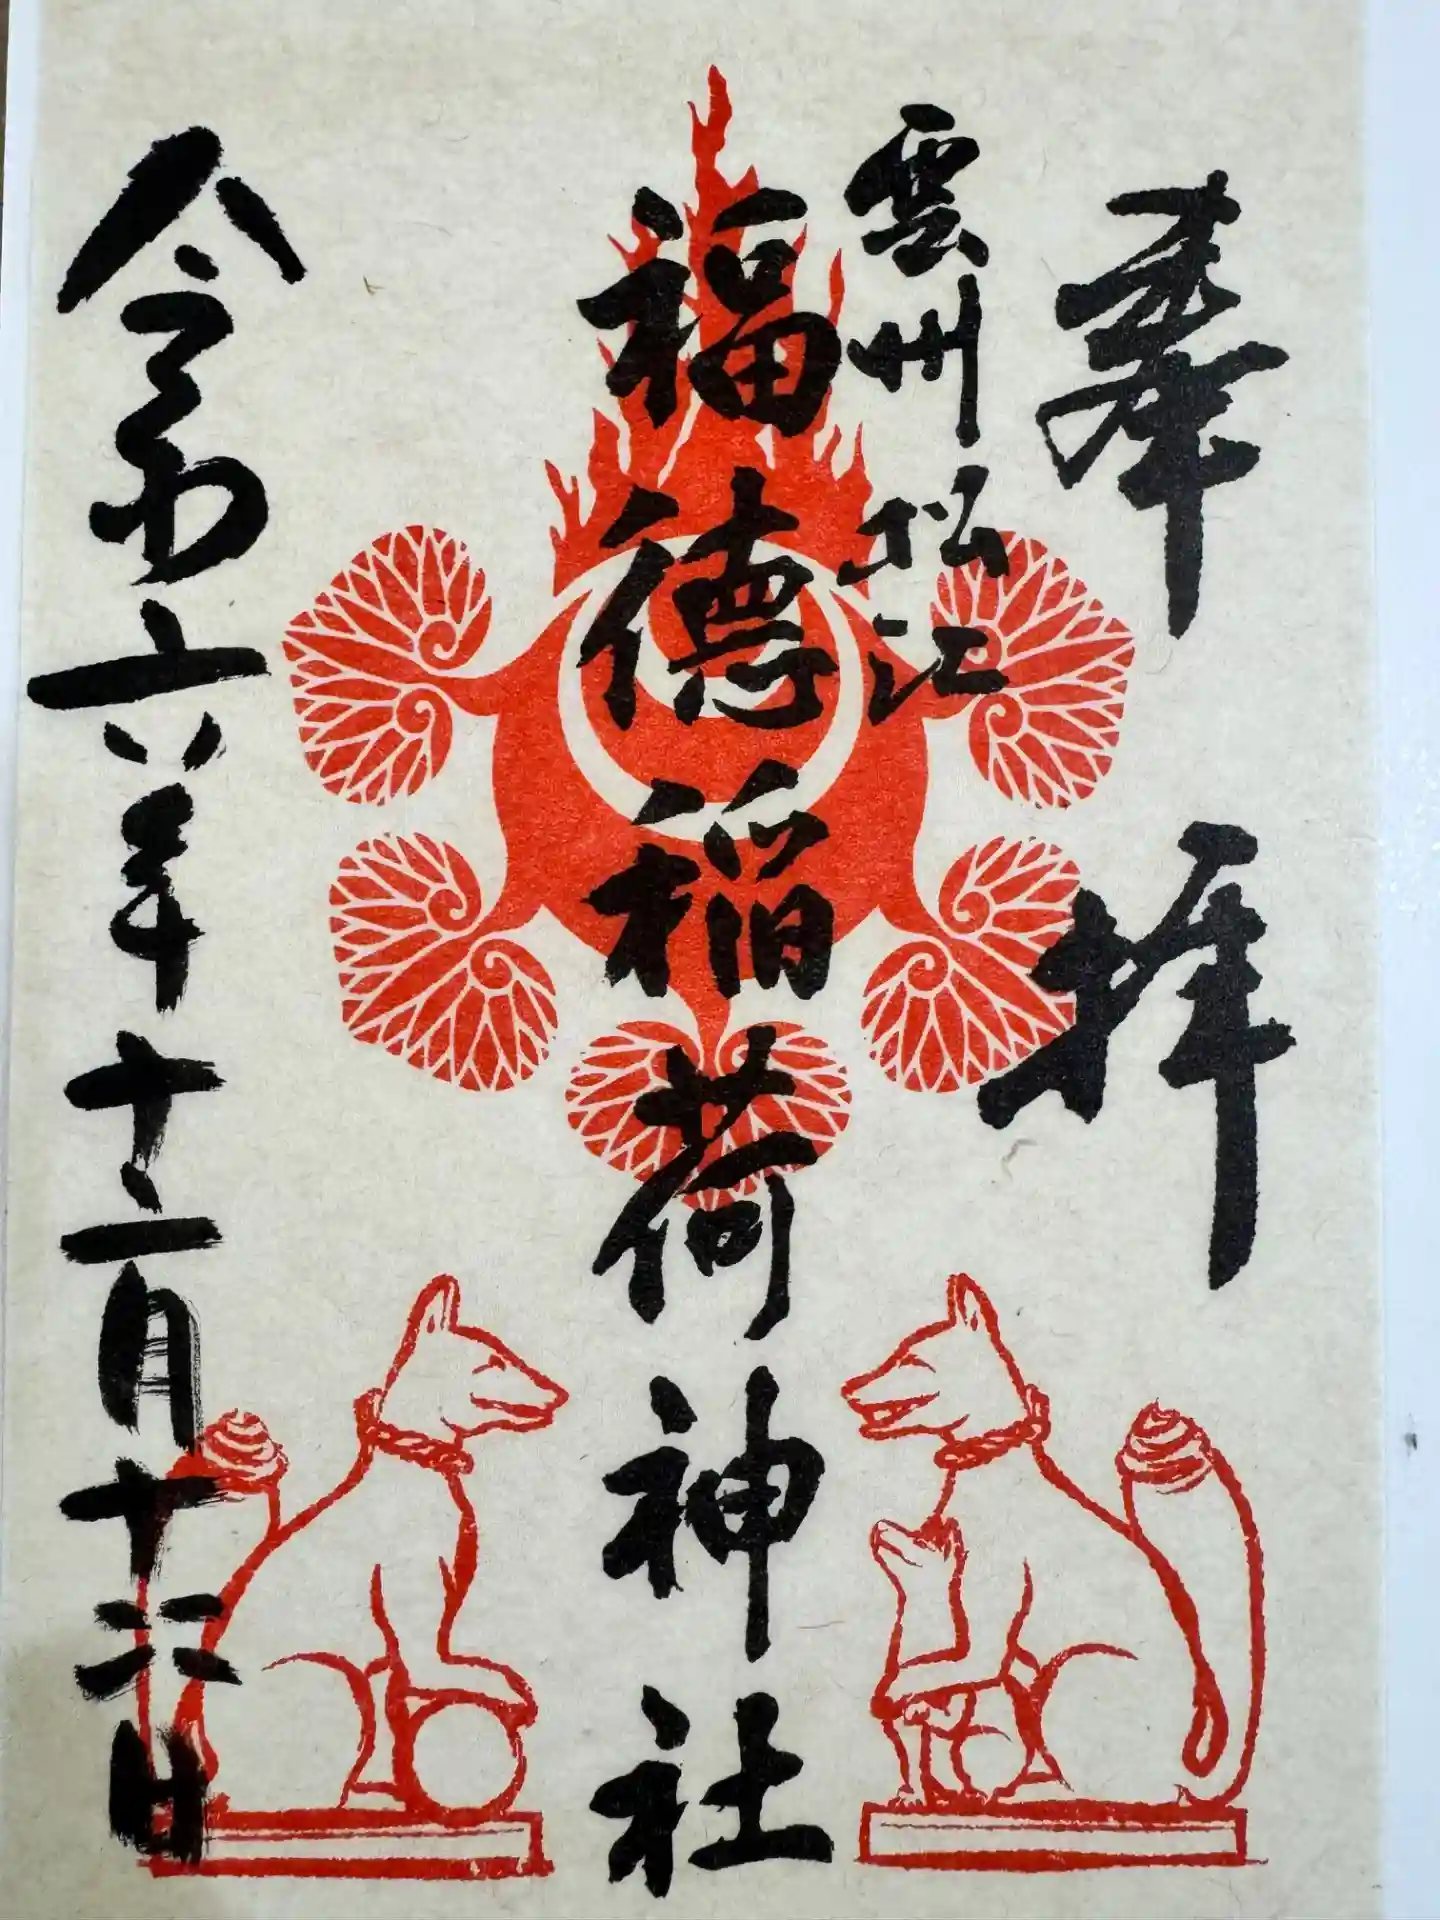 奉拝
雲州松江
福德稲荷神社
令和六年十二月十六日